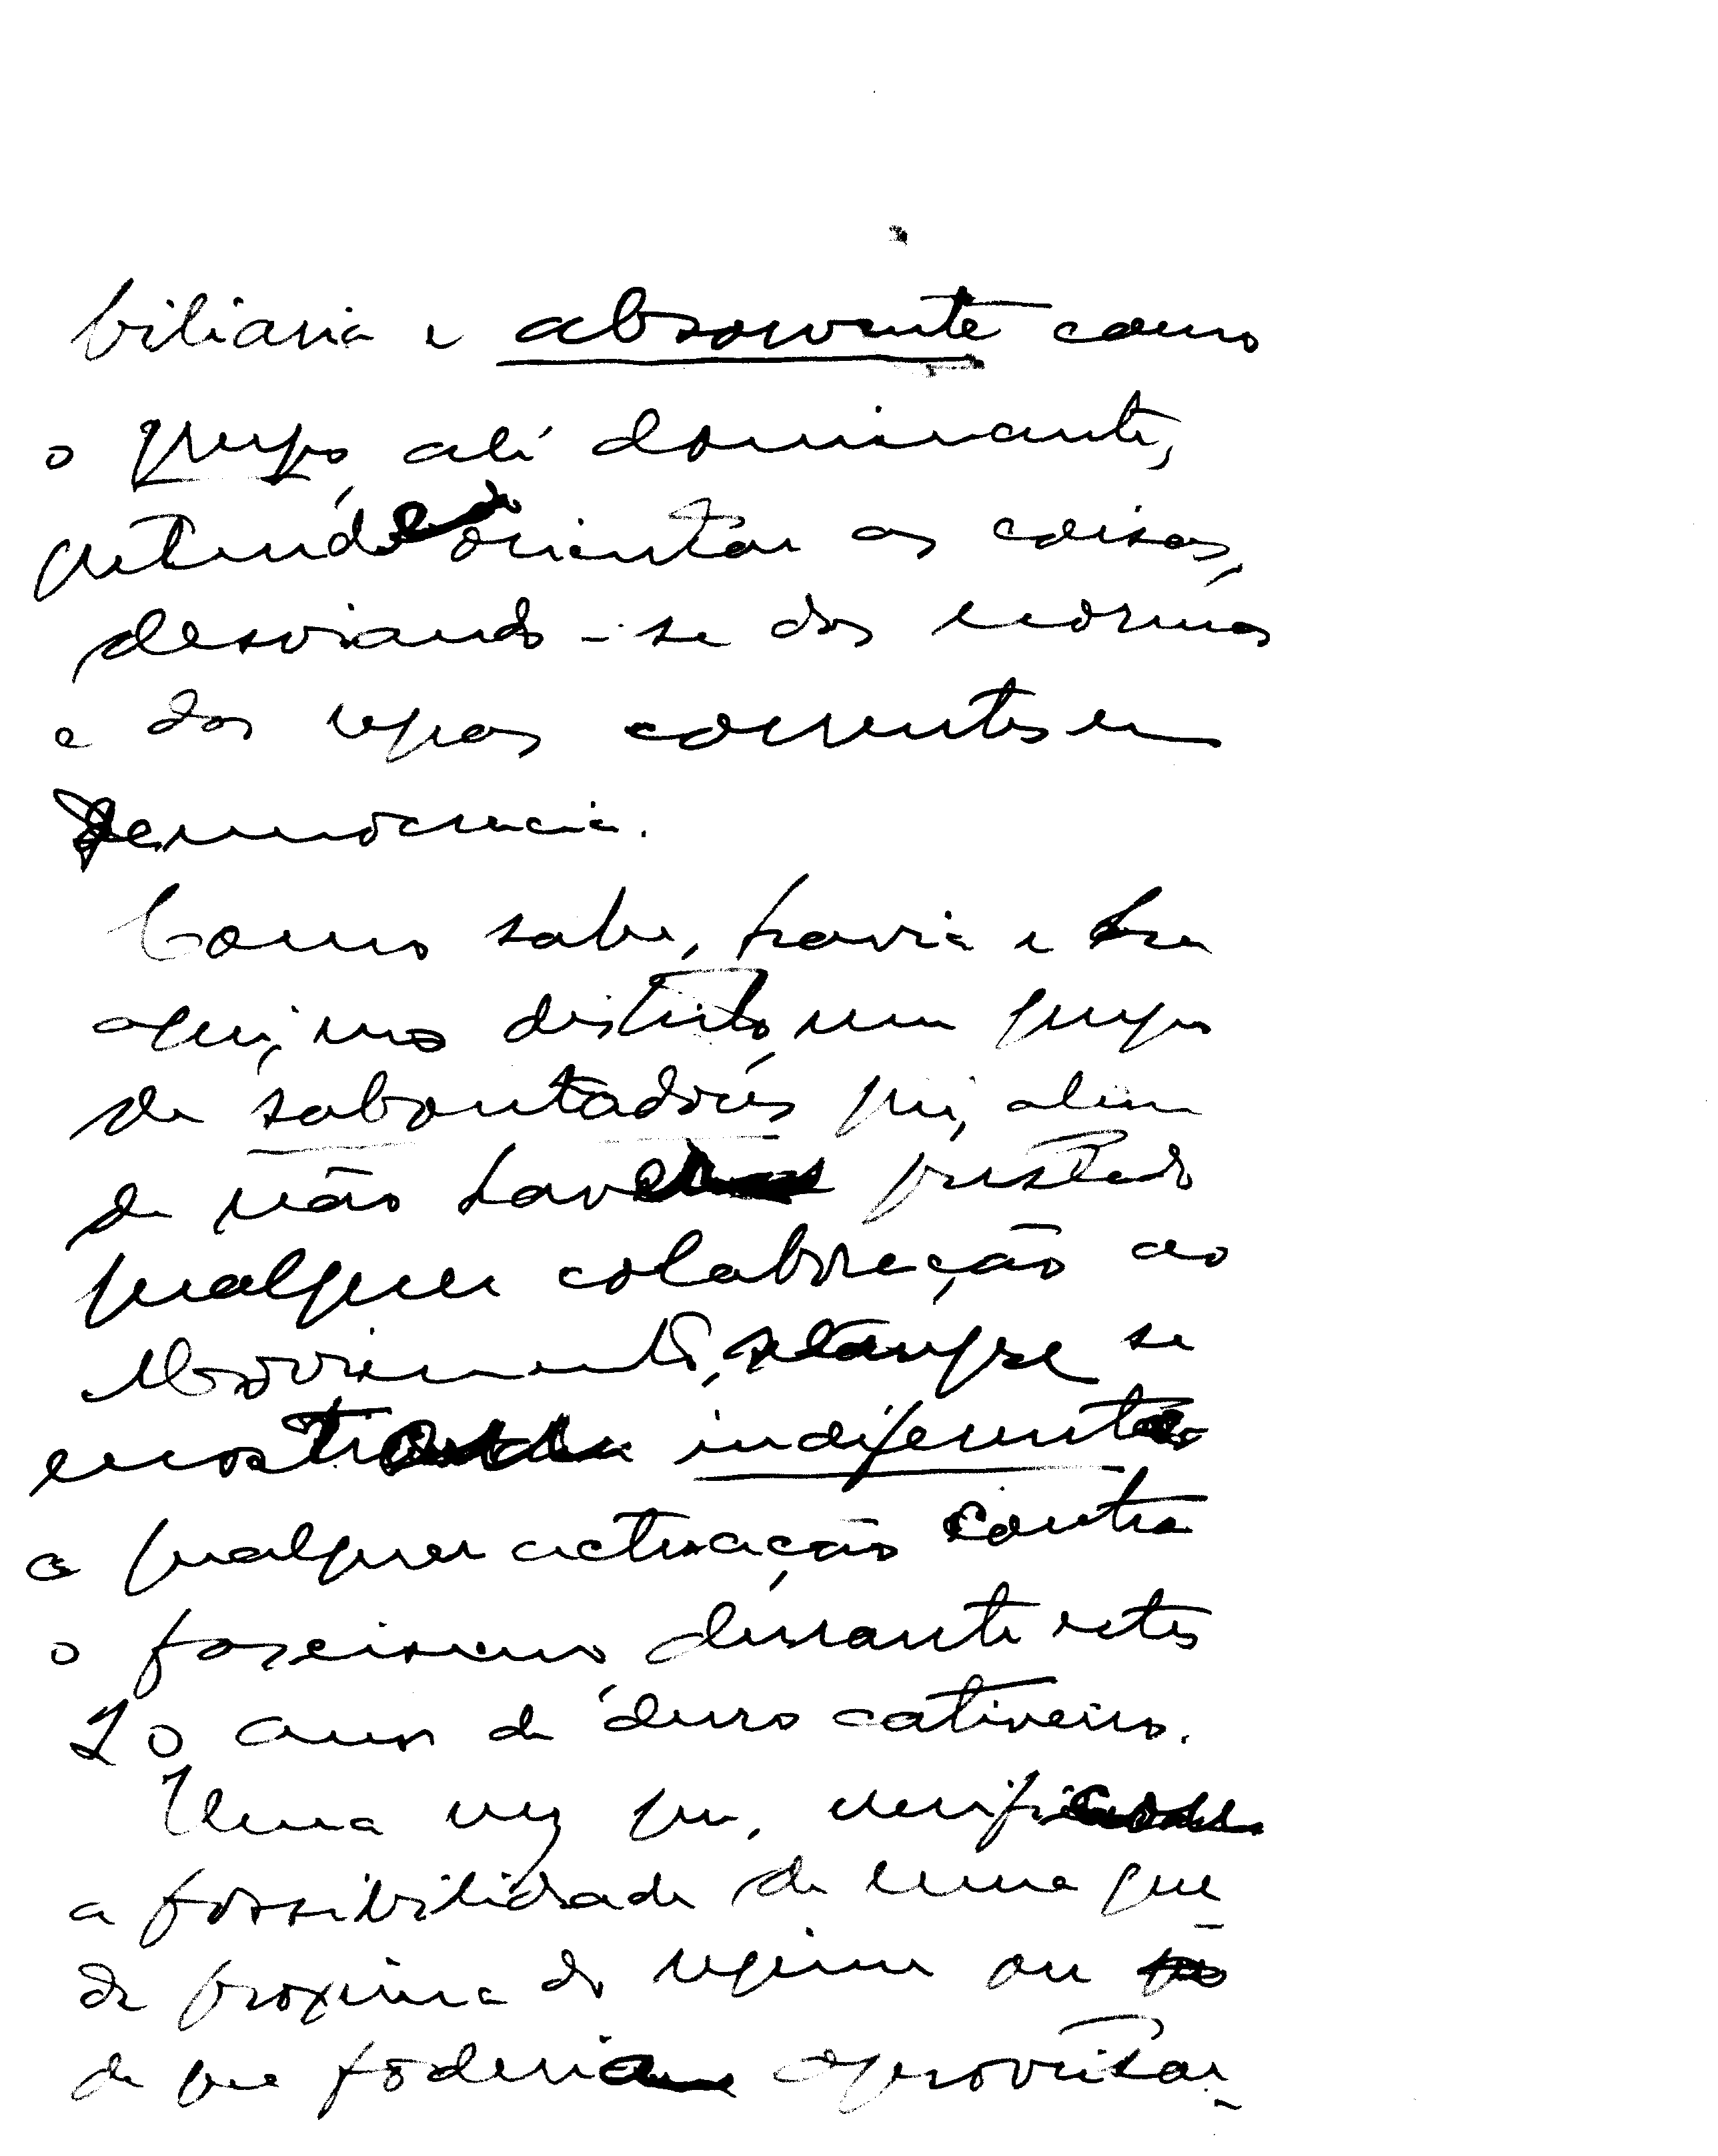 biliaria e absorvente como
o grupo, ali dominante,
pretende orientar as coisas,
desviando-se das normas
e das regras correntes em
Democracia.
Como sabe, havia e ha
aqui, no distrito, um grupo
de sabontadores que, alem
de não haver prestado
qualquer colaboração ao
Movimento, sempre se
mostrou indiferente
a qualquer actuação contra
o fascismo, durante estes
20 anos de duro cativeiro.
Uma vez que, verificou
a possibilidade de uma que
da proxima do regime ou
de que poderia aproveitar-